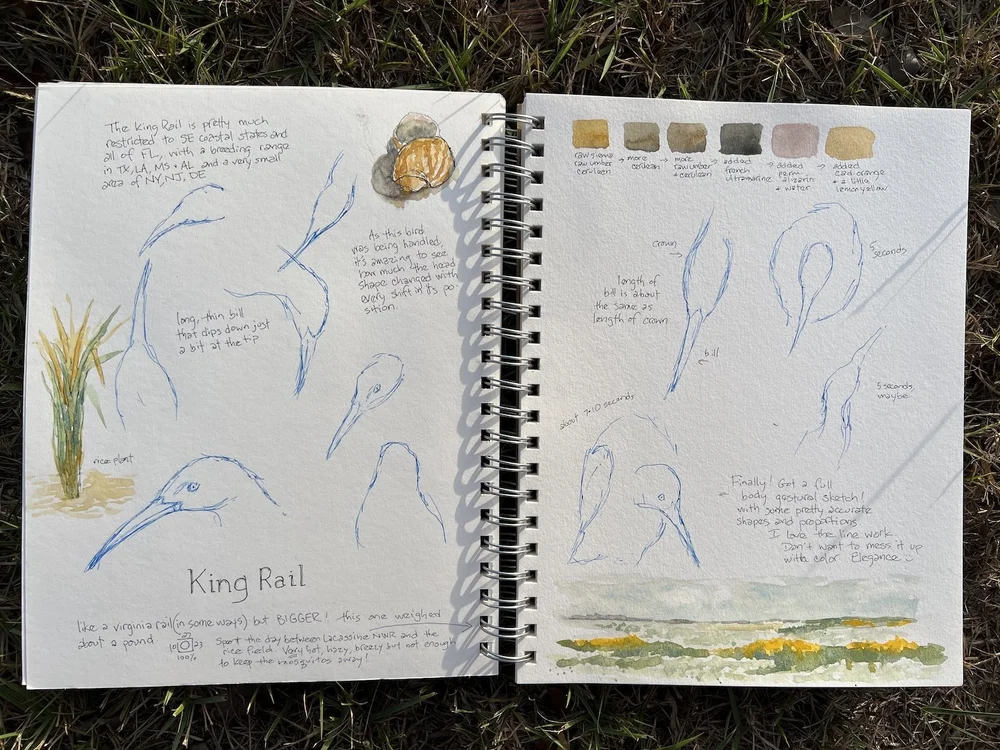 The King Rail is pretty much
restricted to SE coastal states and
all of FL, with a breeding range
in TX, LA, MS + AL and a very small
area of NY, NJ, DE
As this bird
was being handled,
it's amazing to see
how much the head
shape changed with
every shift in its po-
sition.
long, thin bill
that dips down just
a bit at the tip
rice plant
King Rail
like a virginia rail (in some ways) but BIGGER! this one weighed
about a pound
100%
Spent the day between Lacassine NWR and the
rice field. Very hot, hazy, breezy but not enough
to keep the mosquitos away!
raw sienna
raw umber
cerulean
→ more
cerulean
→ more
raw umber
+ cerulean
→ added
french
ultramarine
→ added
perm.
alizarin
+ water
→ added
cad. orange
+ a little
lemon yellow
crown
5
seconds
length of
bill is about
the same as
length of crown
bill
5 seconds,
maybe
about 7-10 seconds
Finally! Got a full
body gestural sketch!
with some pretty accurate
shapes and proportions
I love the line work.
Don't want to mess it up
with color. Elegance